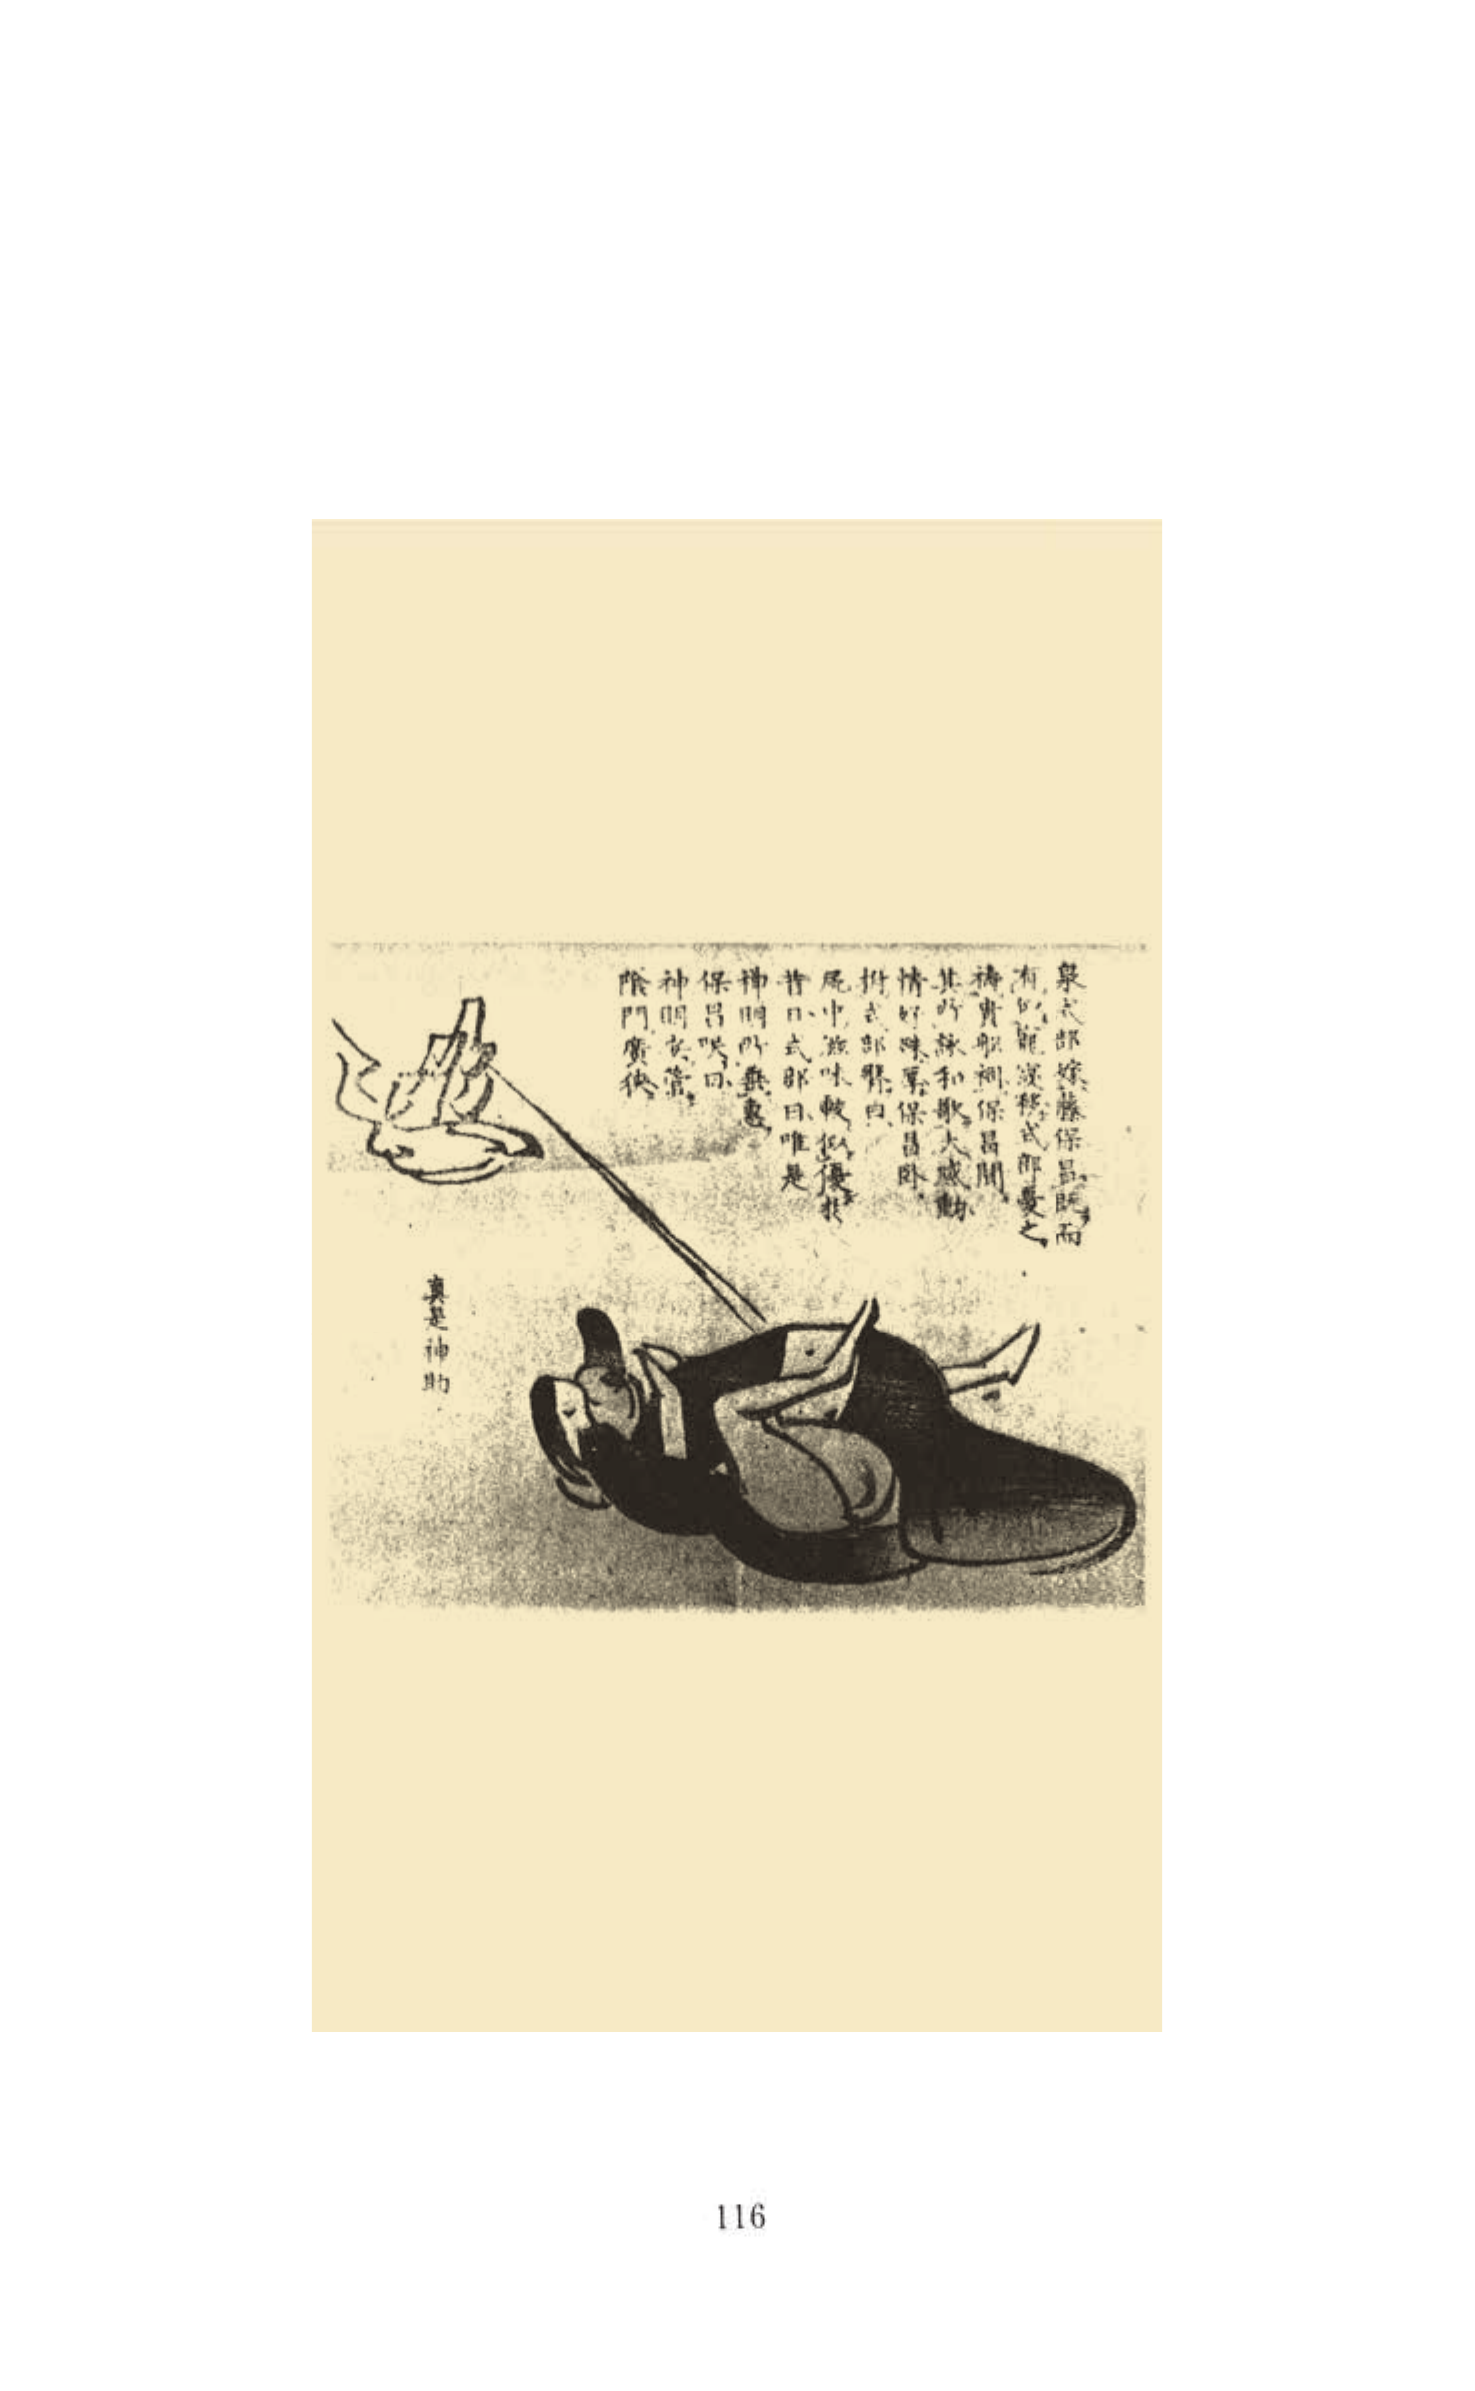 泉式部嫁藤保昌既而
有似寵衰移式部憂之
祷貴船祠保昌聞
其所詠和歌大感動
情好殊厚保昌卧
拊式部臀曰
尾中滋味較似優於
昔日式部曰唯是
神明所垂惠
保昌咲曰
神明亦管
陰門廣狹
真是神助
116